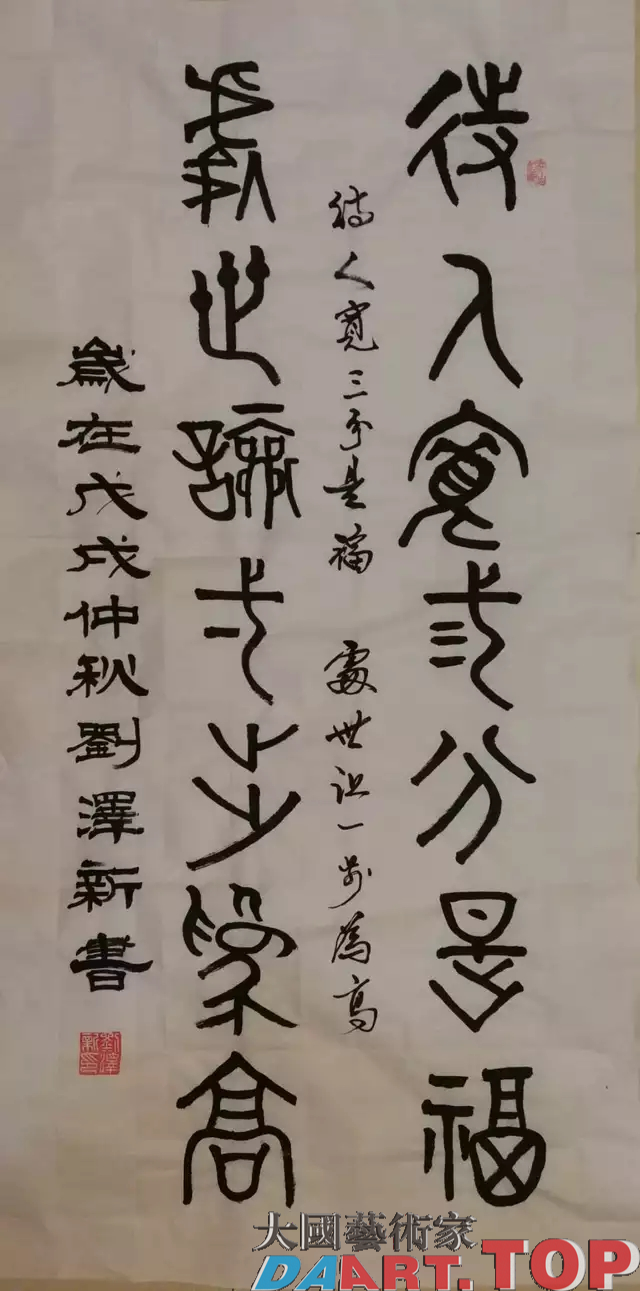 待人寬弎分是福
待人寬三分是福 處世讓一步為高
處世讓弌步為高
歲在戊戌仲秋劉澤新書
劉澤新印
大國藝術家
DAART.TOP